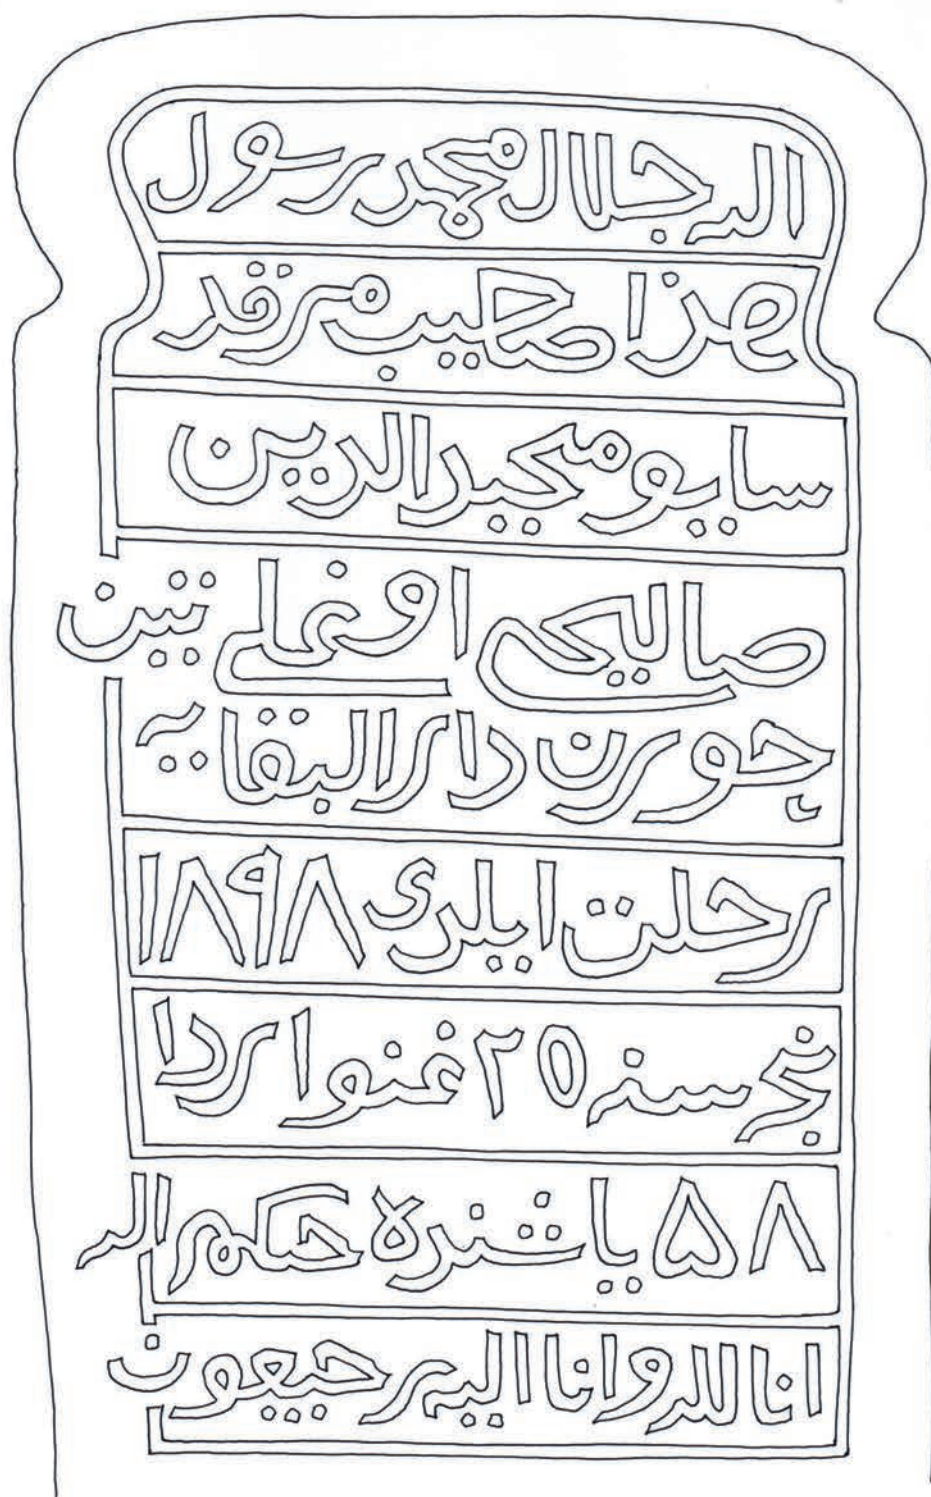 الله جلاله محمد رسول
هذا صاحيب مرقد
سايو مجيد الدين
صاليحى اوغلى تتين
جورن دار البقايه
رحلت ايلدى ١٨٩٨
نجى سنه ٢٥ غنوا ردا
٥٨ ياشنده حكم الله
انا لله وانا اليه رجيعون